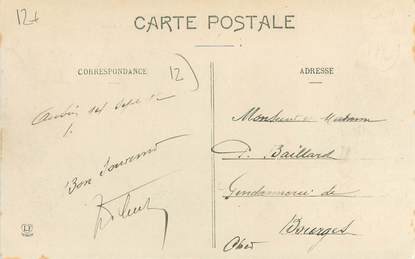 12+
CARTE POSTALE
CORRESPONDANCE
12
ADRESSE
Bon Souvenir
Monsieur et Madame
Baillard
Gendarmerie de
Bourges
Cher